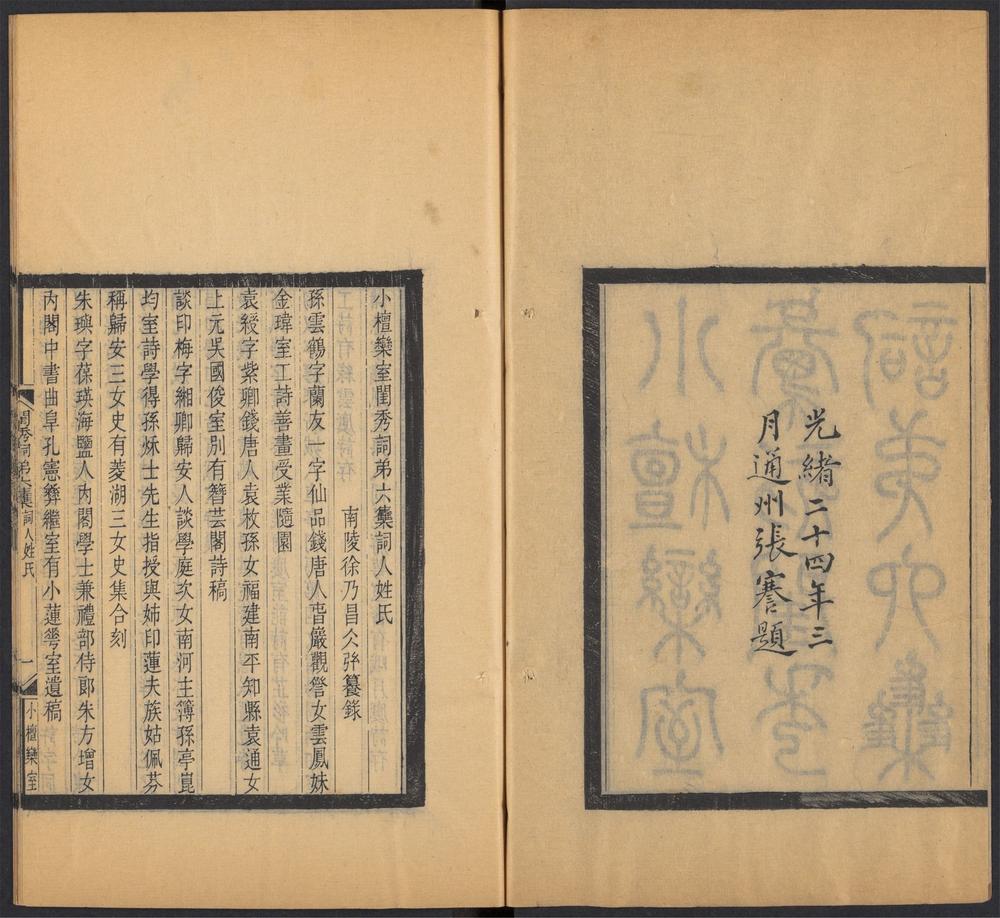 光緒二十四年三
月通州張謇題
小檀欒室閨秀詞弟六集詞人姓氏
南陵徐乃昌仌㢩籑錄
孫雲鶴字蘭友一字仙品錢唐人旹巖觀詧女雲鳳妹
金瑋室工詩善畫受業隨園
袁綬字紫卿錢唐人袁枚孫女福建南平知縣袁通女
上元吳國俊室別有簪芸閣詩稿
談印梅字緗卿歸安人談學庭次女南河主簿孫亭崑
均室詩學得孫秌士先生指授與姊印蓮夫族姑佩芬
稱歸安三女史有菱湖三女史集合刻
朱璵字葆瑛海鹽人內閣學士兼禮部侍郎朱方增女
內閣中書曲阜孔憲彝繼室有小蓮花室遺稿
閨秀詞弟六集詞人姓氏
一
小檀欒室